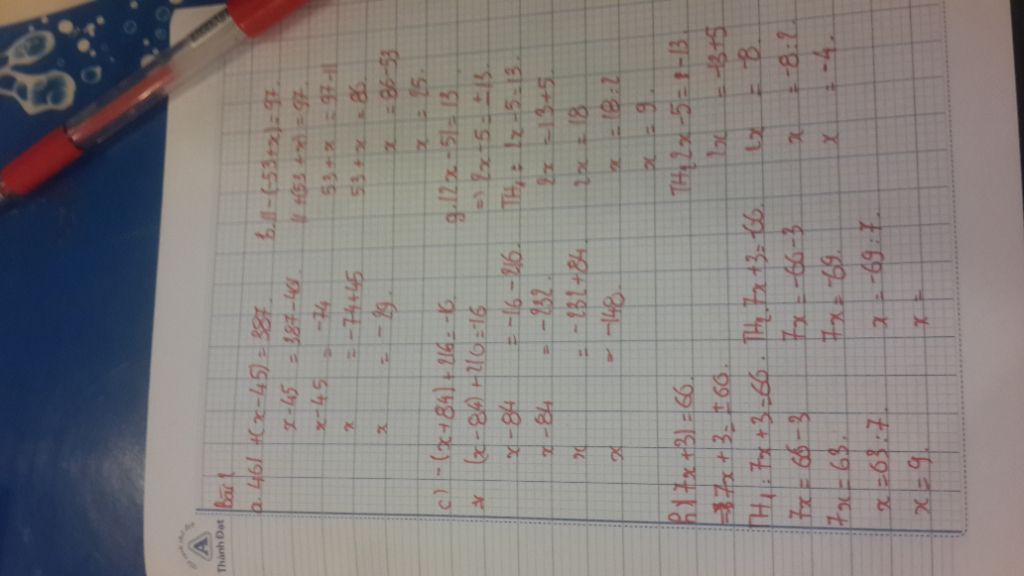 Thành Đạt
Bài 1
a. 461 + (x - 45) = 387
x - 45 = 387 - 461
x - 45 = -74
x = -74 + 45
x = -29
b. 11 - (-53 + x) = 97
11 + (53 + x) = 97
53 + x = 97 - 11
53 + x = 86
x = 86 - 53
c) - (x + 84) + 216 = -16
(x - 84) + 216 = 16
x - 84 = -16 - 216
x - 84 = -232
x = -232 + 84
x = -148
g. |2x - 5| = 13
=> 2x - 5 = ±13
TH1 = 2x - 5 = 13.
2x = 13 + 5
2x = 18
x = 18 : 2
x = 9.
TH2 2x - 5 = -13.
2x = -13 + 5
2x = -8
x = -8 : 2
x = -4.
h) 7x + 3) = 66.
7x + 3 = ±66.
TH1 : 7x + 3 = 66.
7x = 66 - 3
7x = 63.
x = 63 : 7
x = 9.
TH2. 7x + 3 = -66.
7x = -66 - 3
7x = -69.
x = -69 : 7.
x =